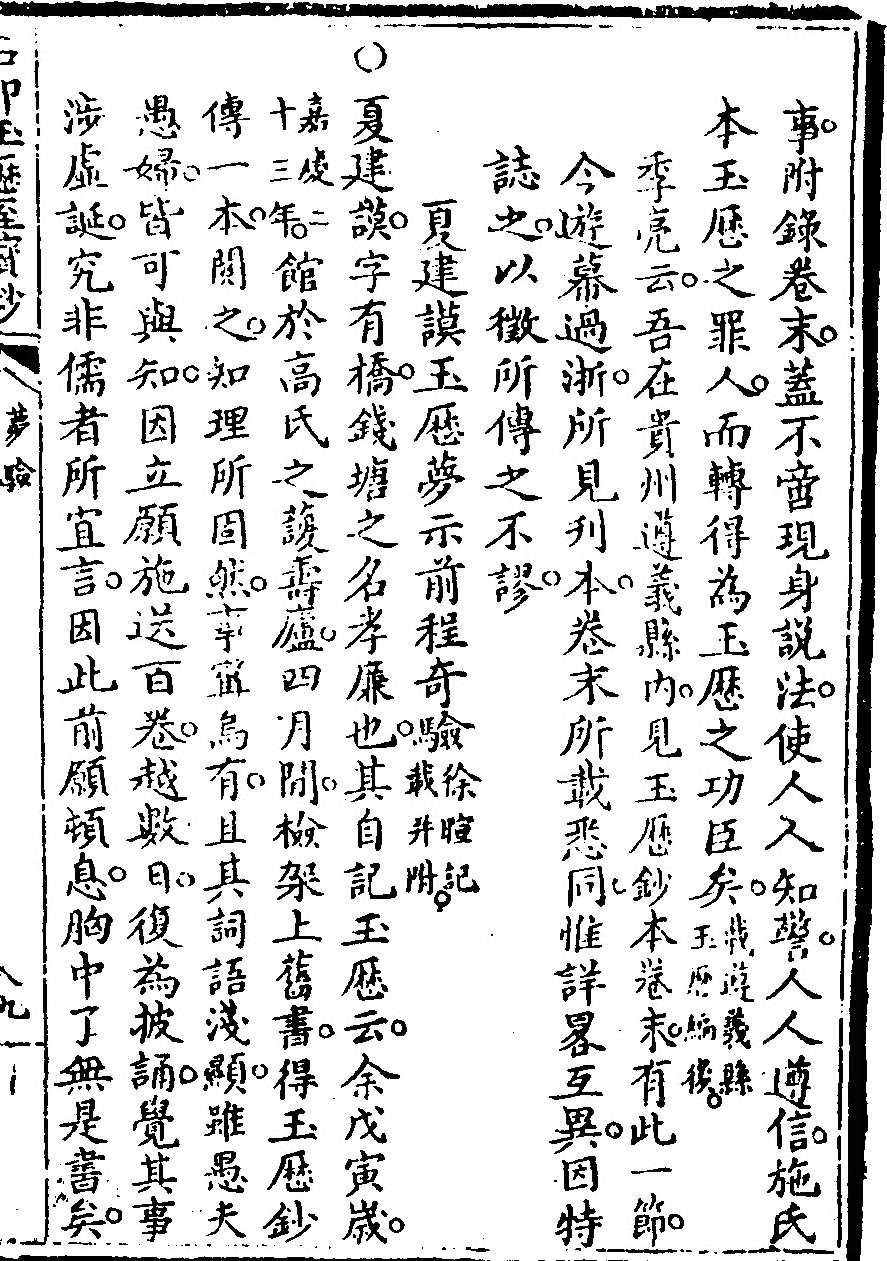 事。附錄卷末。蓋不啻現身說法。使人人知警。人人遵信。施氏
本玉歷之罪人。而轉得為玉歷之功臣矣。載遵義縣玉歷編後。
季亮云。吾在貴州遵義縣內。見玉歷鈔本卷末。有此一節。
今遊幕過浙。所見刋本。卷末所載悉同。惟詳畧互異。因特
誌之。以徵所傳之不謬。
夏建謨玉歷夢示前程奇驗徐暄記載幷附。
○夏建謨。字有橋。錢塘之名孝廉也。其自記玉歷云。余戊寅歲。
嘉慶二十三年。館於高氏之護壽廬。四月間。檢架上舊書。得玉歷鈔
傳一本。閱之。知理所固然。事宜烏有。且其詞語淺顯。雖愚夫
愚婦。皆可與知。因立願施送百卷。越數日。復為披誦。覺其事
涉虛誕。究非儒者所宜言。因此前願頓息。胸中了無是書矣。
石印玉歷至寶鈔
夢驗
八九